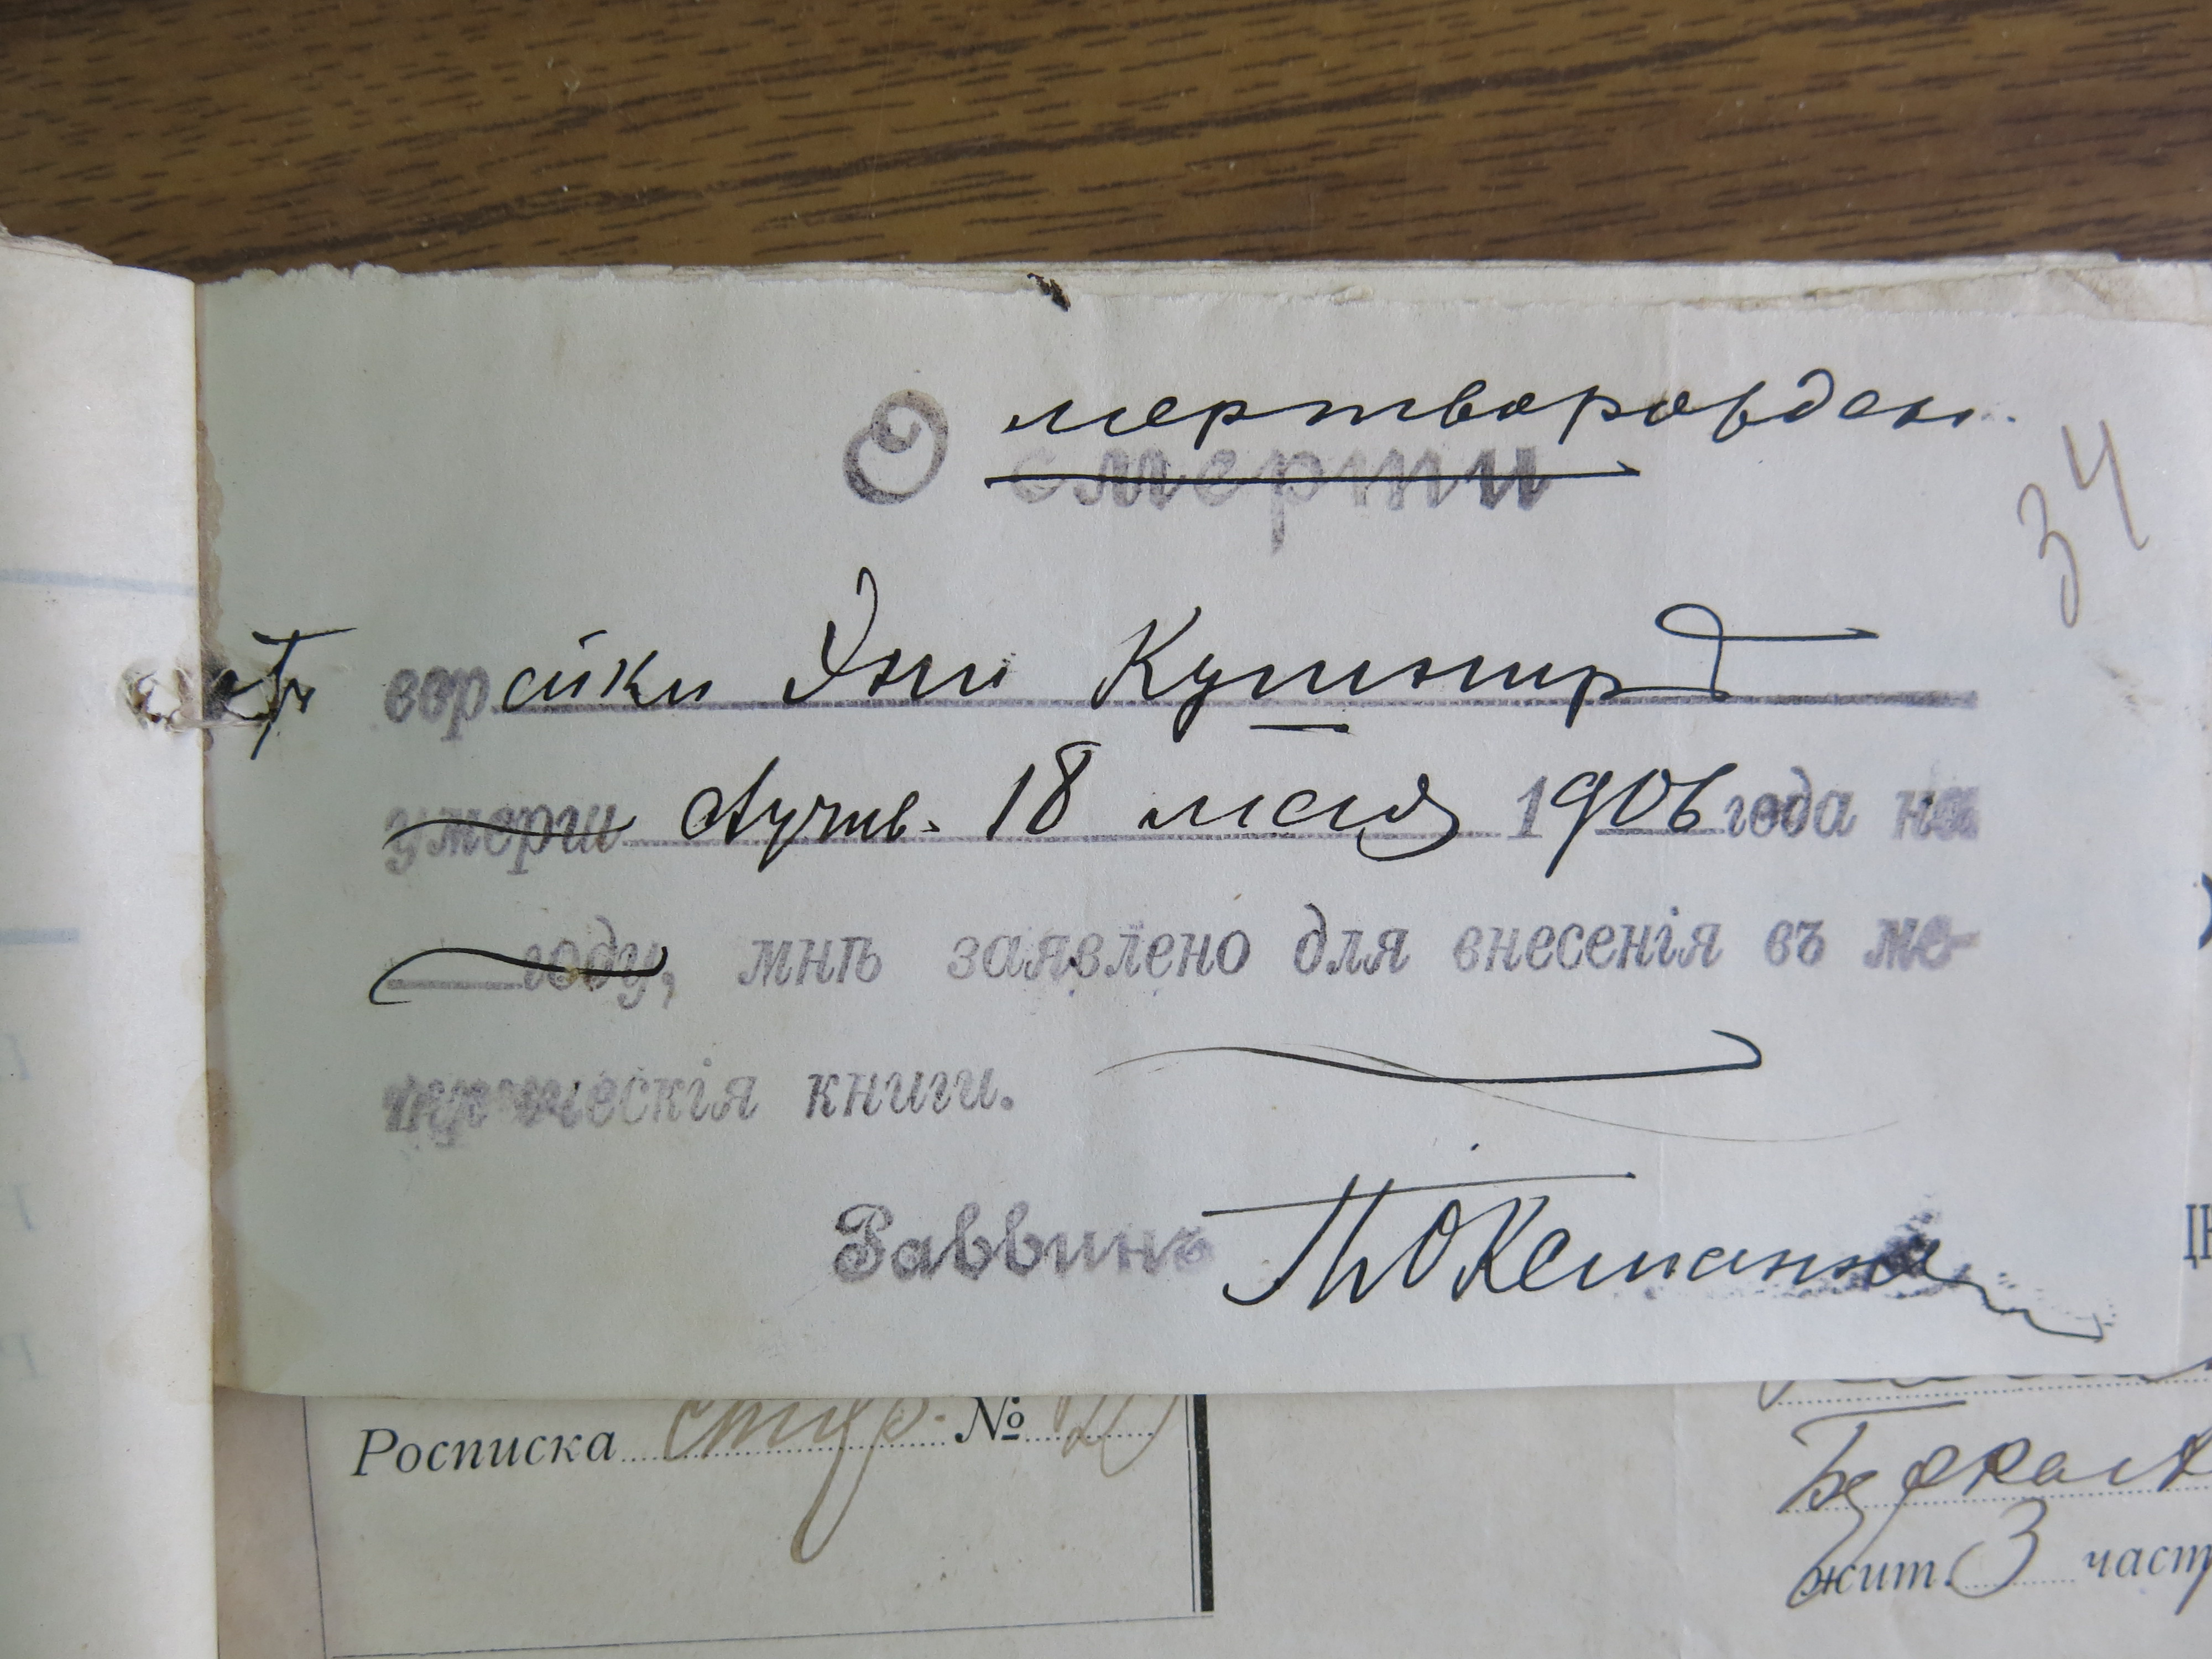 О мертворожден.
смерти
34
еврейки Эни Кушнир
умерш случив. 18 мая 1906 года на
году, мнѣ заявлено для внесенія въ ме-
трическія книги.
Раввинъ
Росписка №
жит. 3 част